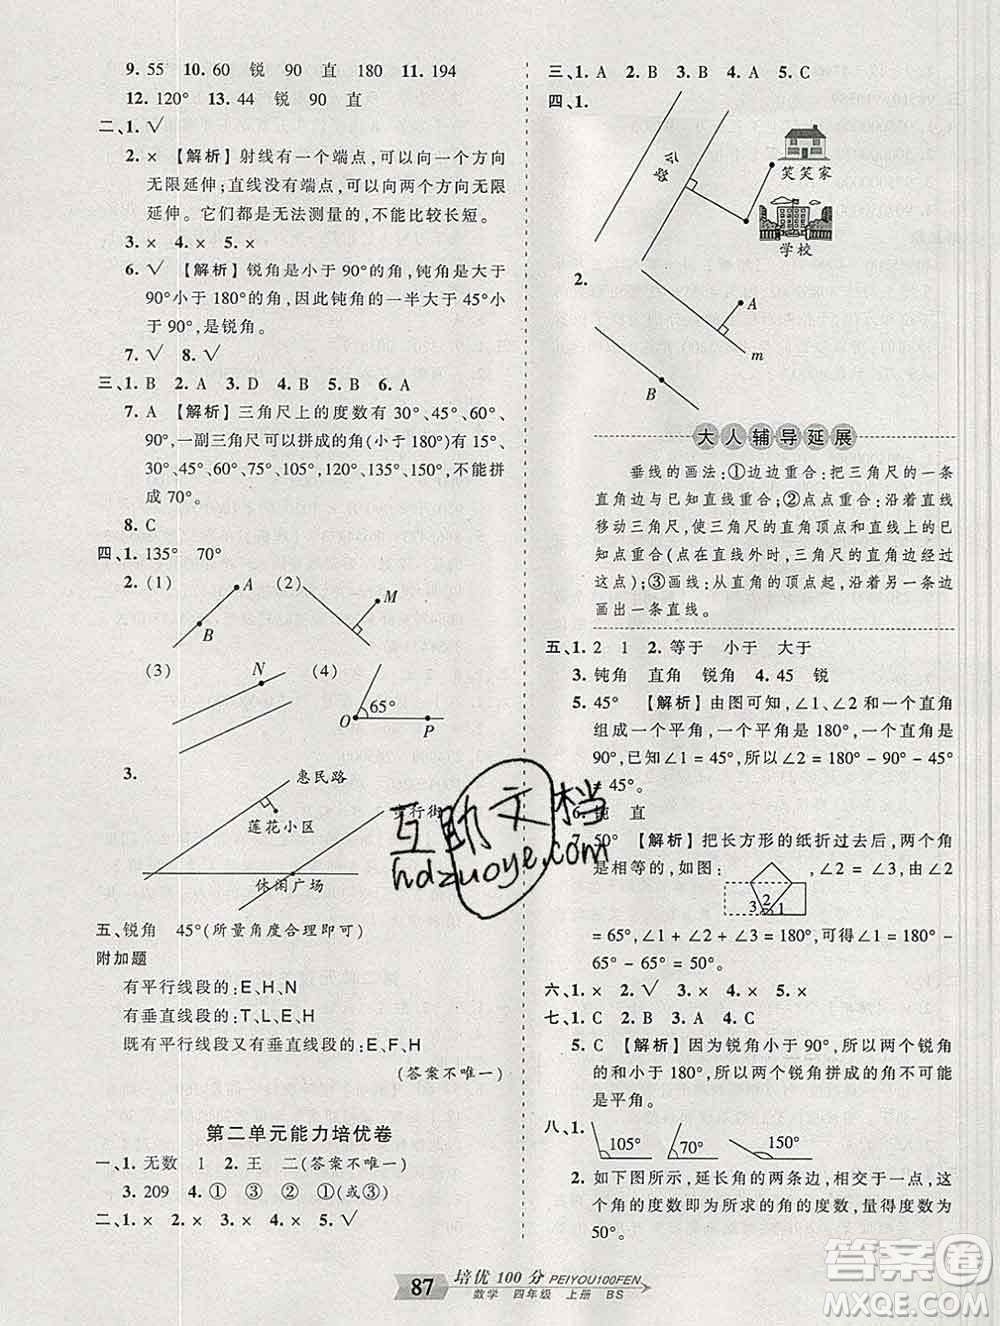 9. 55　10. 60　锐　90　直　180　11. 194
12. 120°　13. 44　锐　90　直
二、1. √
2. ×　【解析】射线有一个端点,可以向一个方向
无限延伸;直线没有端点,可以向两个方向无限
延伸。它们都是无法测量的,不能比较长短。
3. ×　4. ×　5. ×
6. √　【解析】锐角是小于90°的角,钝角是大于
90°小于180°的角,因此钝角的一半大于45°小
于90°,是锐角。
7. √　8. √
三、1. B　2. A　3. D　4. B　5. B　6. A
7. A　【解析】三角尺上的度数有30°、45°、60°、
90°,一副三角尺可以拼成的角(小于平角)有15°、
30°、45°、60°、75°、90°、105°、120°、135°、150°,不能拼
成70°。
8. C
四、1. 135°　70°
2. (1)
A
B
(2)
M
(3)
N
(4)
65°
O
P
3.
惠民路
莲花小区
步行街
休闲广场
五、锐角　45°(所量角度合理即可)
附加题
有平行线段的:E、H、N
有垂直线段的:T、L、E、H
既有平行线段又有垂直线段的:E、F、H
(答案不唯一)
第二单元能力培优卷
一、1. 无数　1　2. 王　二(答案不唯一)
3. 209　4. ①　③　②　①(或③)
二、1. ×　2. ×　3. ×　4. ×　5. √
三、1. A　2. B　3. B　4. A　5. C
四、1.
公路
笑笑家
学校
2.
A
m
B
大人辅导延展
垂线的画法:①边边重合:把三角尺的一条
直角边与已知直线重合;②点点重合:沿着直线
移动三角尺,使三角尺的直角顶点和直线上的已
知点重合(点在直线外时,三角尺的直角边经过
这点);③画线:从直角的顶点起,沿着另一条边
画出一条直线。
五、1. 2　1　2. 等于　小于　大于
3. 钝角　直角　锐角　4. 45　锐
5. 45°　【解析】由图可知,∠1、∠2和一个直角
组成一个平角,一个平角是180°,一个直角是
90°,已知∠1=45°,所以∠2=180°-90°-45°
=45°。
6. 钝　直
7. 50°　【解析】把长方形的纸折过去后,两个角
是相等的,如图:
3
2
1
,∠2=∠3,由∠2
=65°,∠1+∠2+∠3=180°,可得∠1=180°-
65°-65°=50°。
六、1. ×　2. √　3. ×　4. ×　5. ×
七、1. C　2. B　3. A　4. C
5. C　【解析】因为锐角小于90°,所以两个锐角
的和小于180°,所以两个锐角拼成的角不可能
是平角。
八、1.
105°
70°
150°
2. 如下图所示,延长角的两条边,相交于一点,这
个角的度数即为所求的角的度数,量得度数为
50°。
87
培优100分 PEIYOU100FEN
数学　四年级　上册　BS
互助文档
hdzuoye.com
答案圈
MXQE.COM